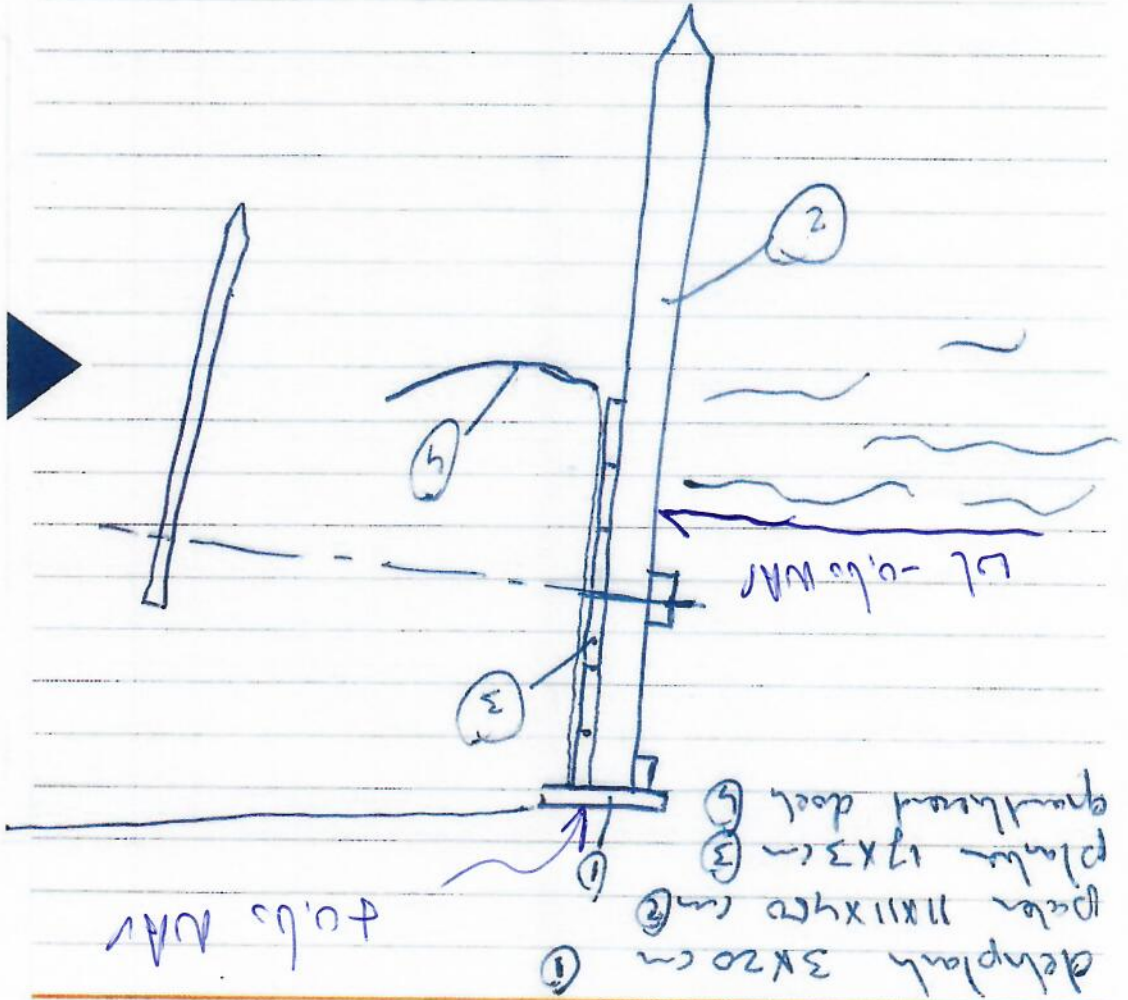 dekplank 3x20 cm ①
palen 11x11x400 cm ②
planken 17x3 cm ③
grondkerend doek ④
+0,60 NAP
①
③
WL -0,60 NAP
④
②